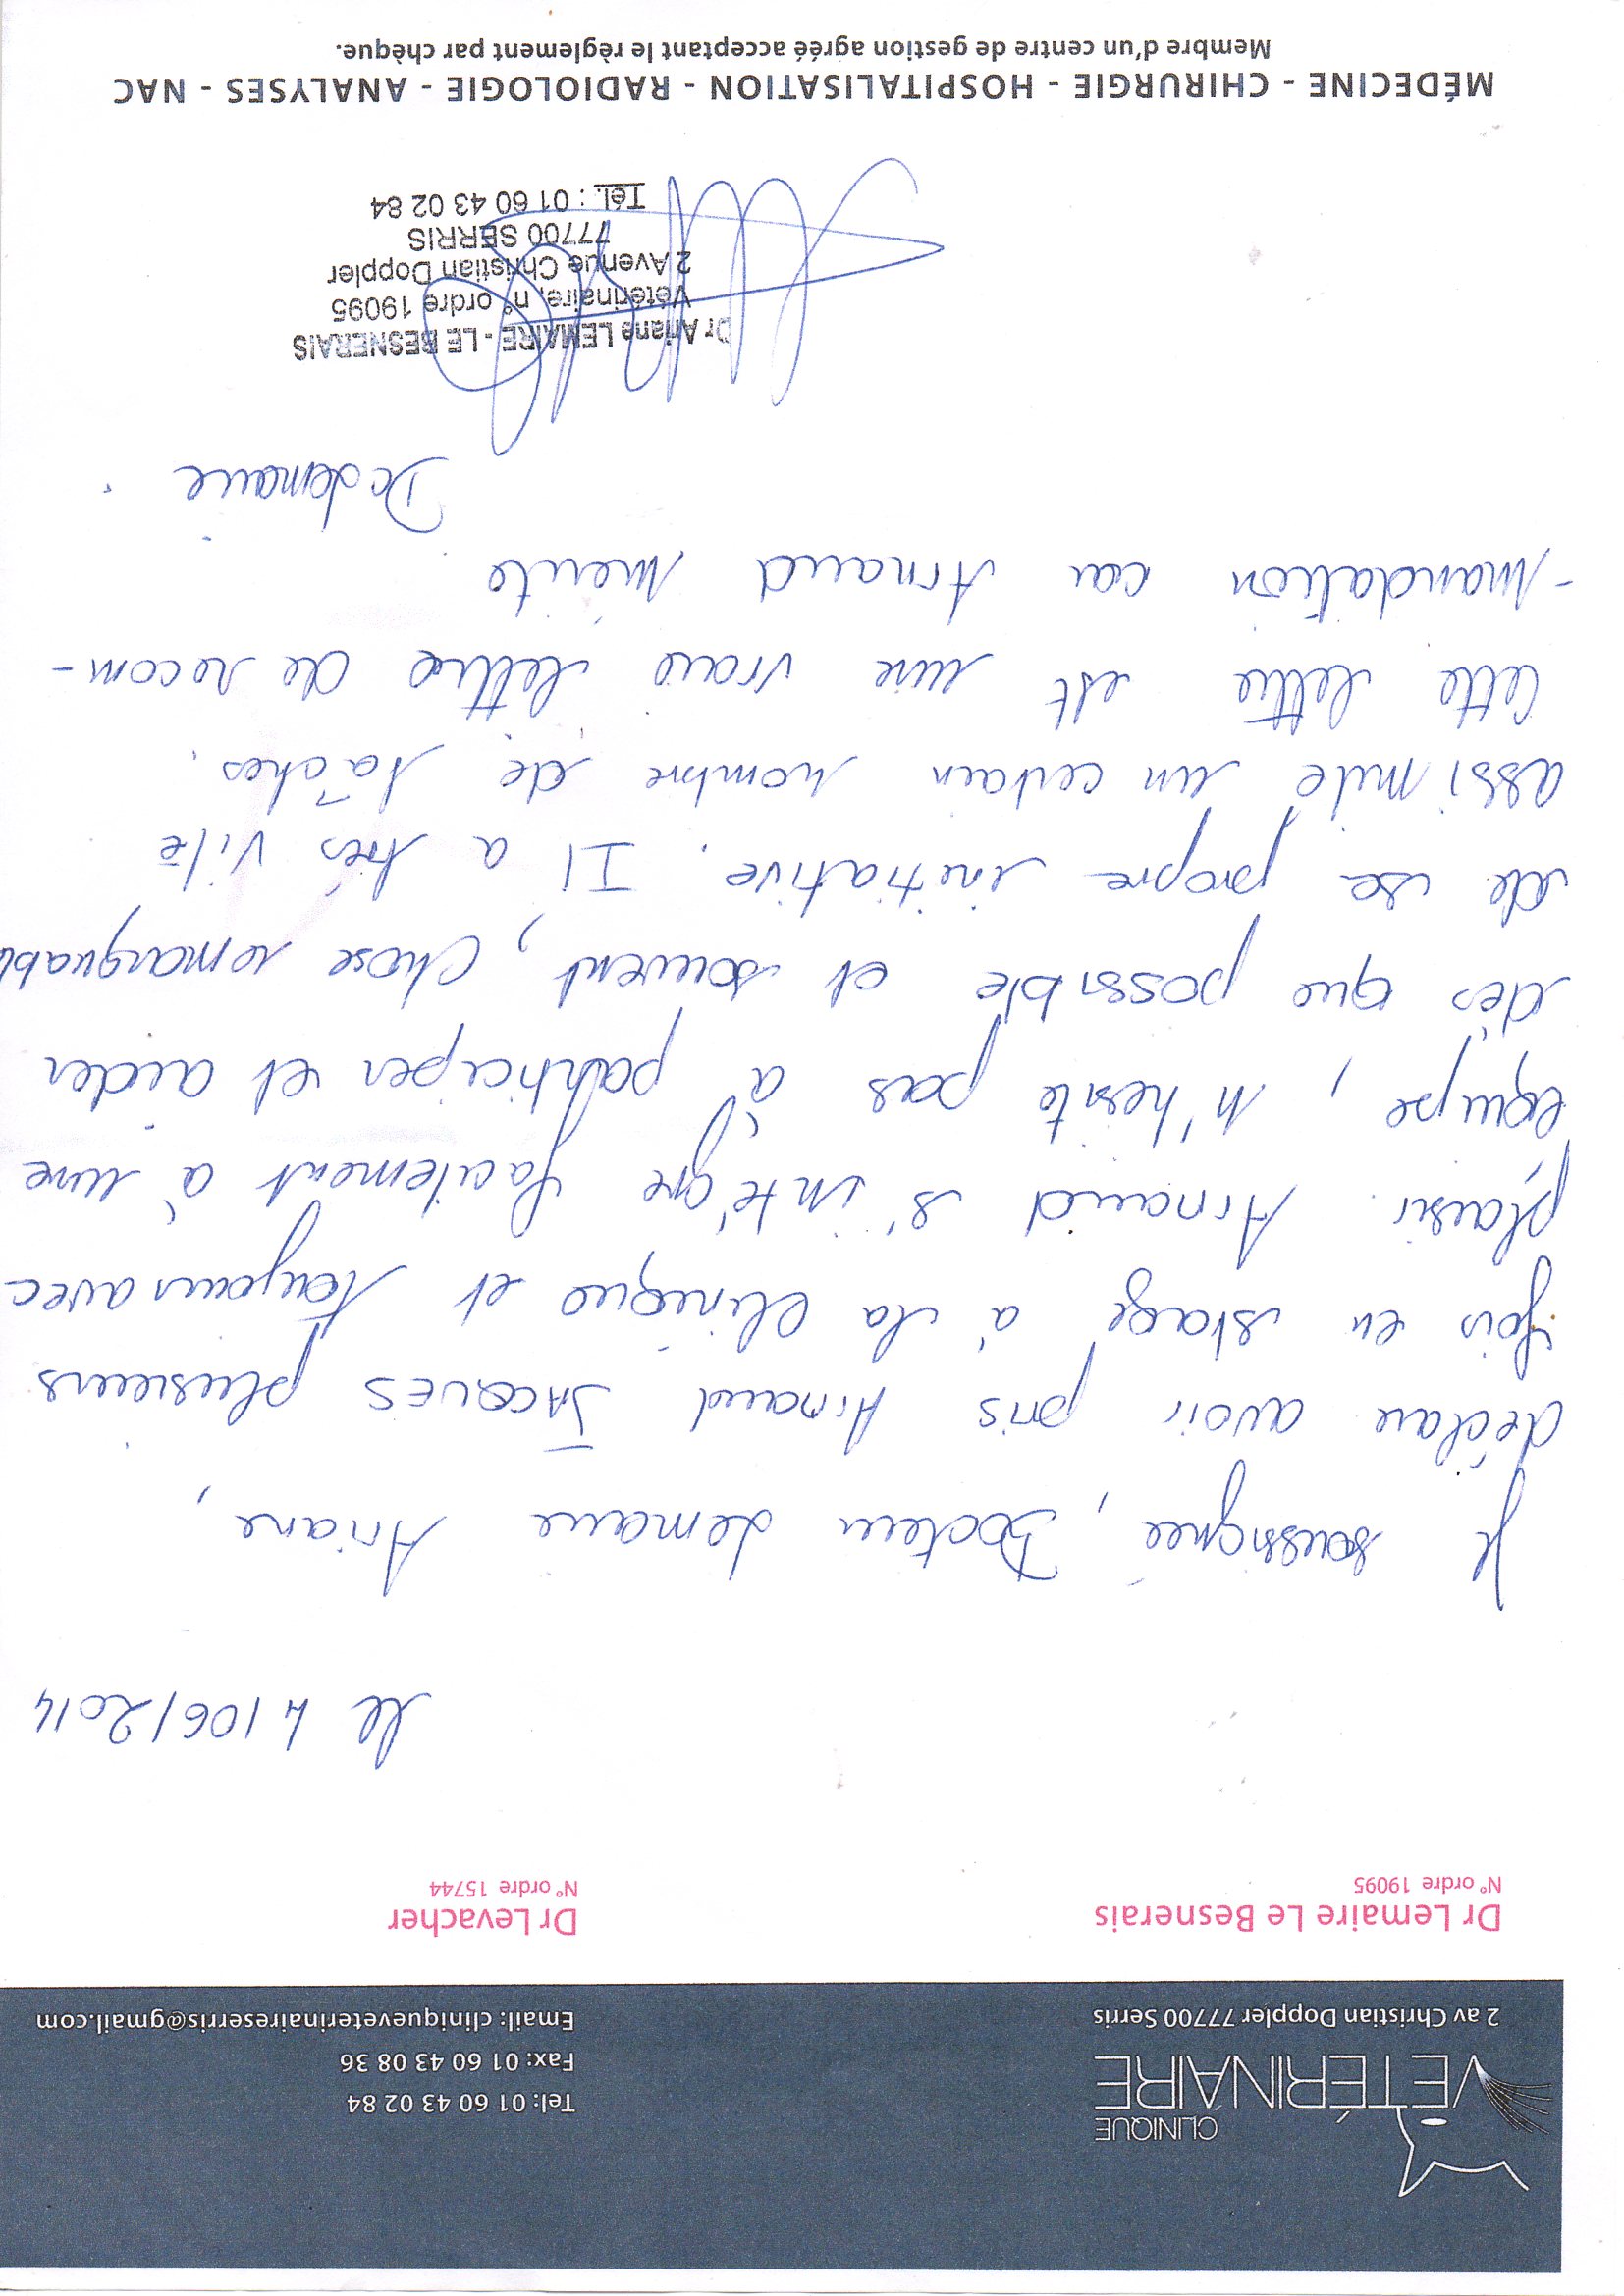 CLINIQUE
VÉTÉRINAIRE
2 av Christian Doppler 77700 Serris
Tel: 01 60 43 02 84
Fax: 01 60 43 08 36
Email: cliniqueveterinaireserris@gmail.com
Dr Lemaire Le Besnerais
N° ordre 19095
Dr Levacher
N° ordre 15744
Le 4/06/2014
Je soussignée, Docteur Lemaire Ariane,
déclare avoir pris Arnaud JACQUES plusieurs
fois en stage à la clinique et toujours avec
plaisir. Arnaud s'intégre facilement à une
équipe, n'hesite pas à participer et aider
dès que possible et souvent, chose remarquable
de sa propre initiative. Il a très vite
assimilé un certain nombre de tâches.
Cette lettre est une vraie lettre de recom-
-mandation car Arnaud mérite
Dr Lemaire.
Dr Ariane LEMAIRE - LE BESNERAIS
Vétérinaire, n° ordre 19095
2 Avenue Christian Doppler
77700 SERRIS
Tél. : 01 60 43 02 84
MÉDECINE - CHIRURGIE - HOSPITALISATION - RADIOLOGIE - ANALYSES - NAC
Membre d'un centre de gestion agréé acceptant le règlement par chèque.